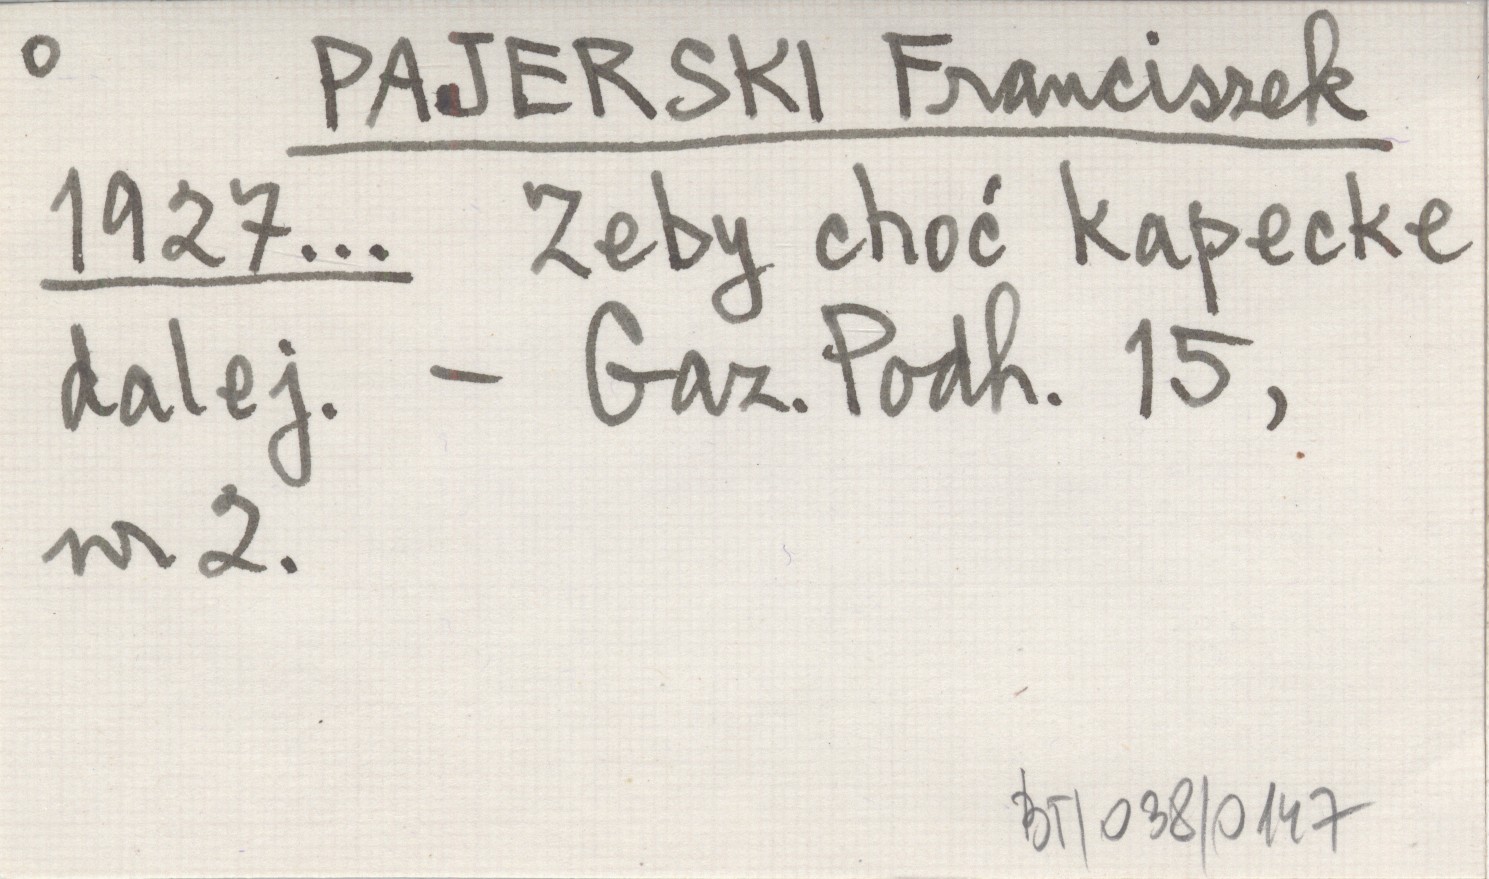 o PAJERSKI Franciszek
1927... Zeby choć kapecke
dalej. - Gaz. Podh. 15,
nr 2.
BT/038/0147